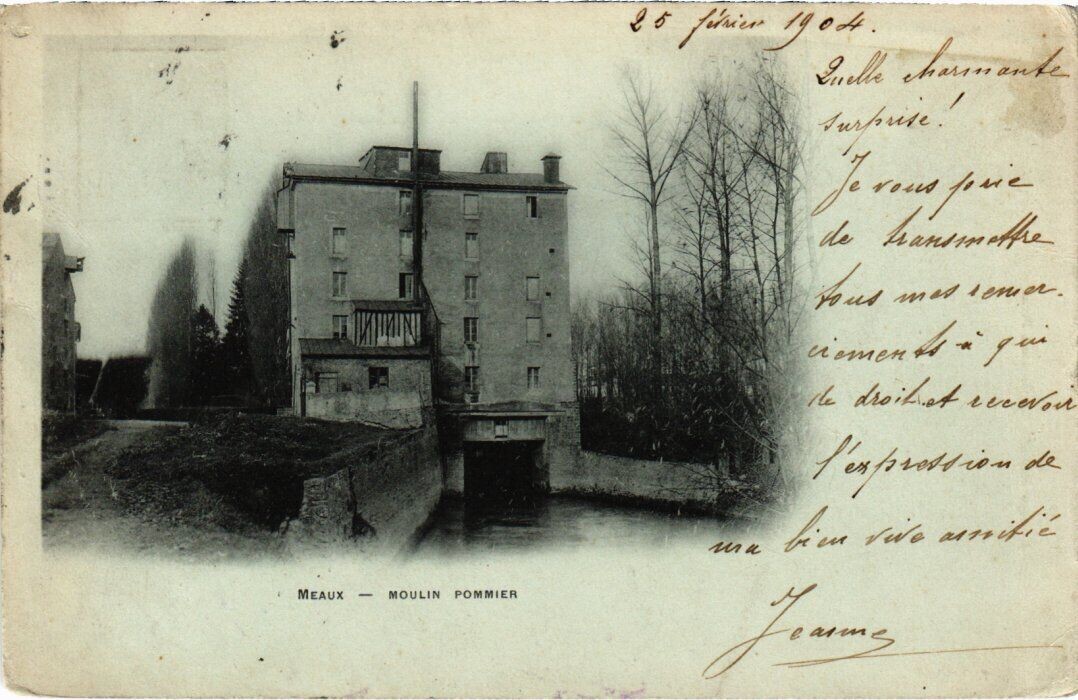 25 février 1904.
Quelle charmante
surprise!
Je vous prie
de transmettre
tous mes remer-
ciements à qui
de droit et recevoir
l'expression de
ma bien vive amitié
Jeanne
MEAUX — MOULIN POMMIER